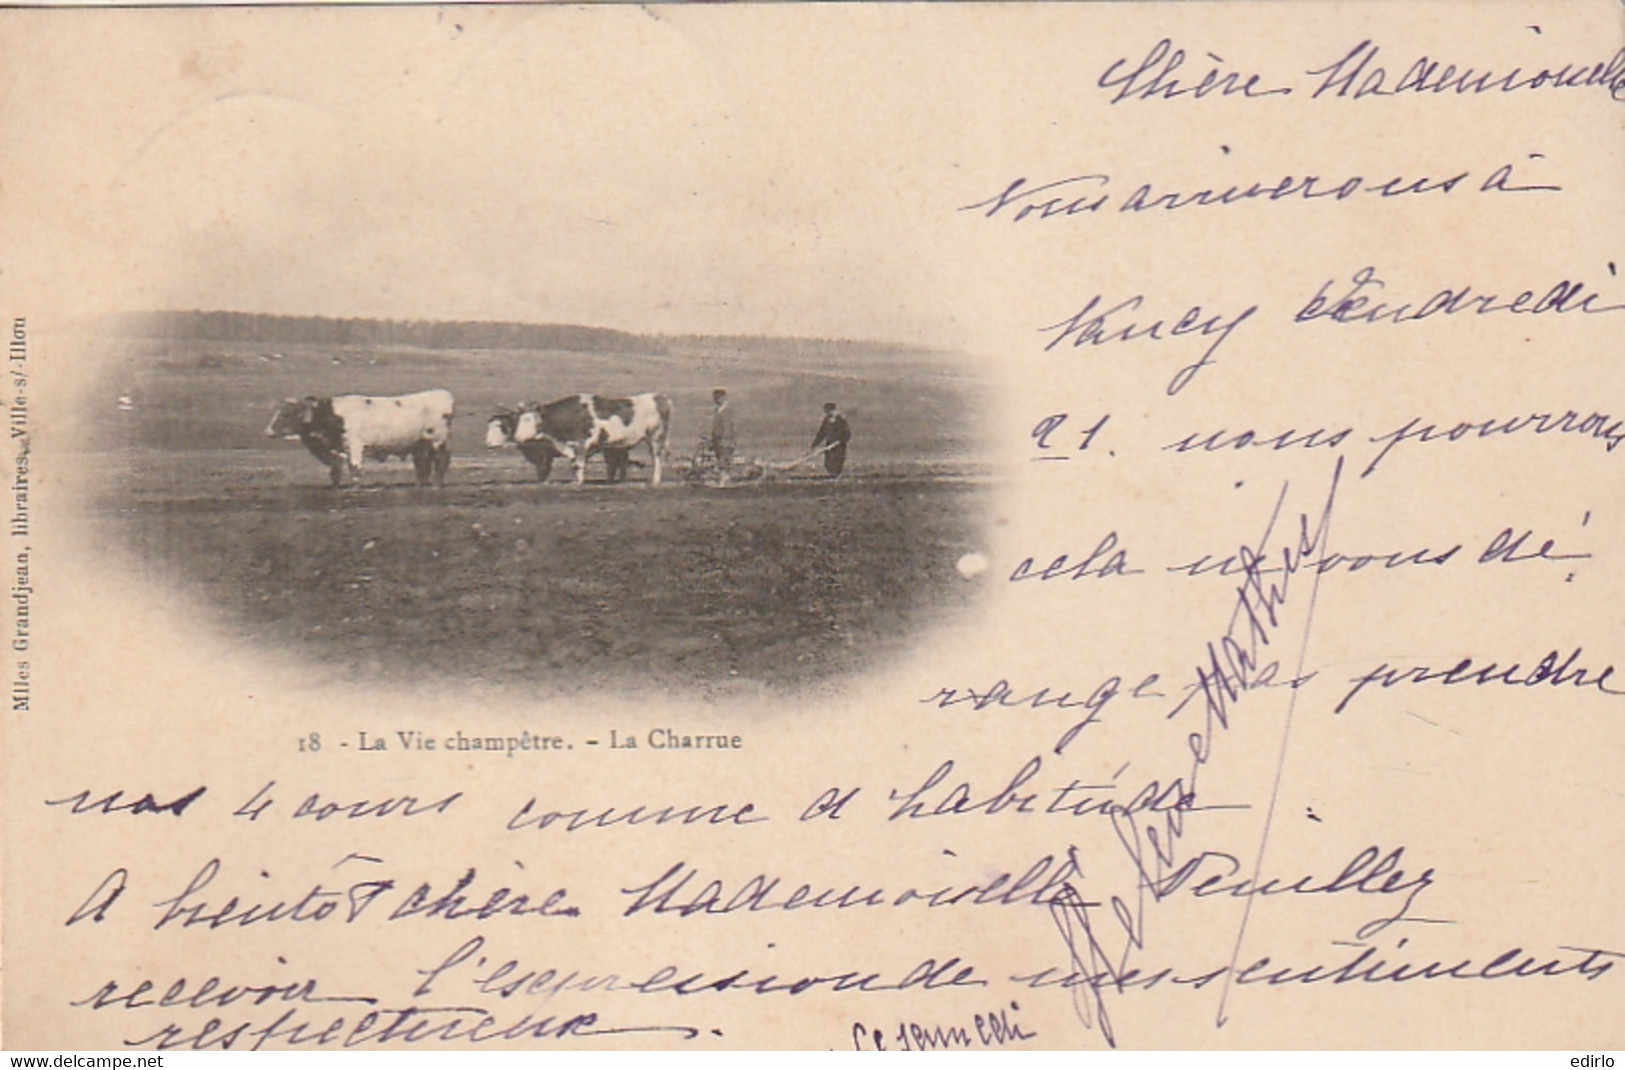 Chère Mademoiselle
Nous arriverons à
Nancy Vendredi
21. nous pourrons
cela ne vous dé
range pas prendre
nos 4 cours comme d habitude
A bientôt chère Mademoiselle Veuillez
recevoir l'expression de mes sentiments
respectueux.
Ce samedi
Helene Mathis
18 - La Vie champêtre. - La Charrue
Mlles Grandjean, libraires, Ville-s/-Illon
www.delcampe.net
edirlo